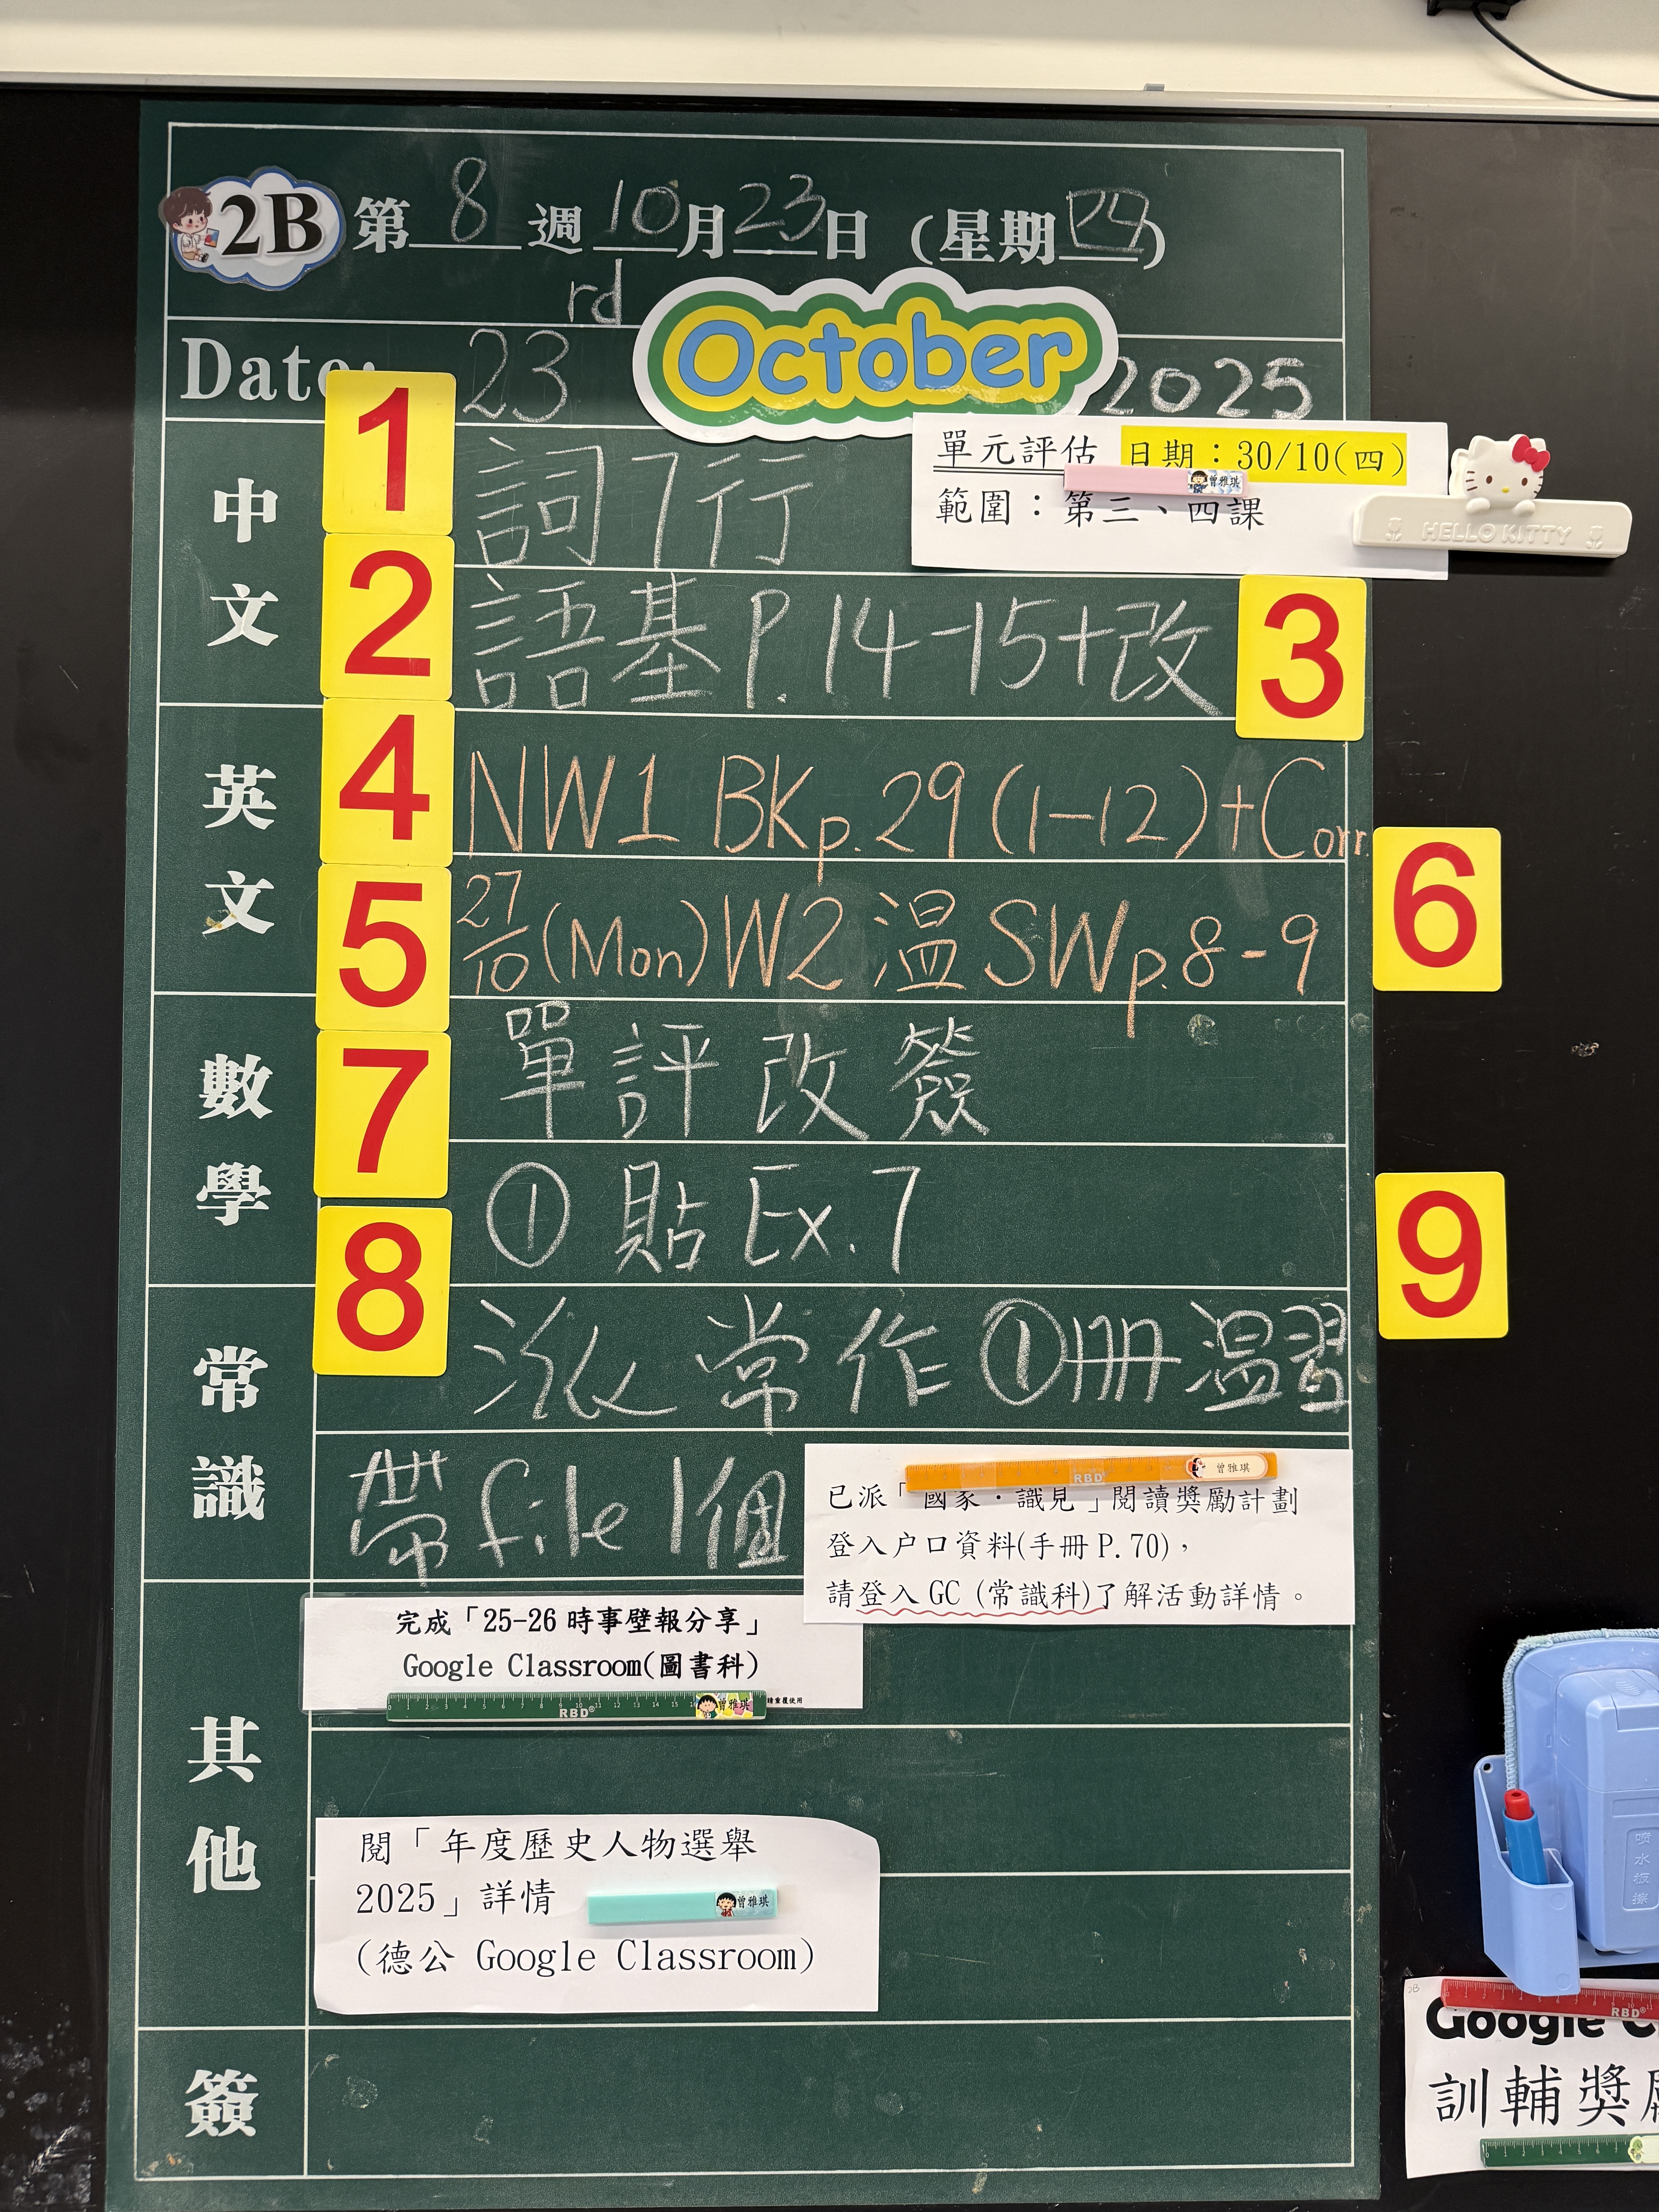 2B 第8週10月23日(星期四)
Date: 23rd October 2025
單元評估 日期：30/10(四)
曾雅琪
範圍：第三、四課
HELLO KITTY
中文
1 詞7行
2 語基P.14-15+改 3
英文
4 NW1 BKp.29(1-12)+Corr.
5 27/10(Mon)W2 温 SWp.8-9 6
數學
7 單評改簽
① 貼Ex.7
常識
8 派常作①冊温習 9
帶file 1個
RBD 曾雅琪
已派「國家．識見」閱讀獎勵計劃
登入户口資料(手冊P.70)，
請登入GC (常識科)了解活動詳情。
其他
完成「25-26 時事壁報分享」
Google Classroom(圖書科)
RBD 曾雅琪 重覆使用
閱「年度歷史人物選舉
2025」詳情
曾雅琪
(德公 Google Classroom)
簽
噴水板擦
RBD
Google C
訓輔獎